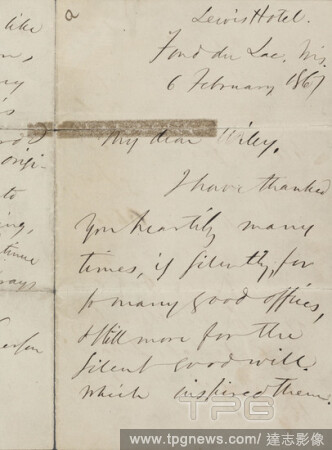 a
Lewis Hotel.
Fond du Lac, Wis.
6 February 1867
My dear Wiley,
I have thanked
you heartily many
times, if silently, for
so many good offices,
& still more for the
silent good will
which inspired them.
like
to
always
TPG
www.tpgnews.com / 達志影像